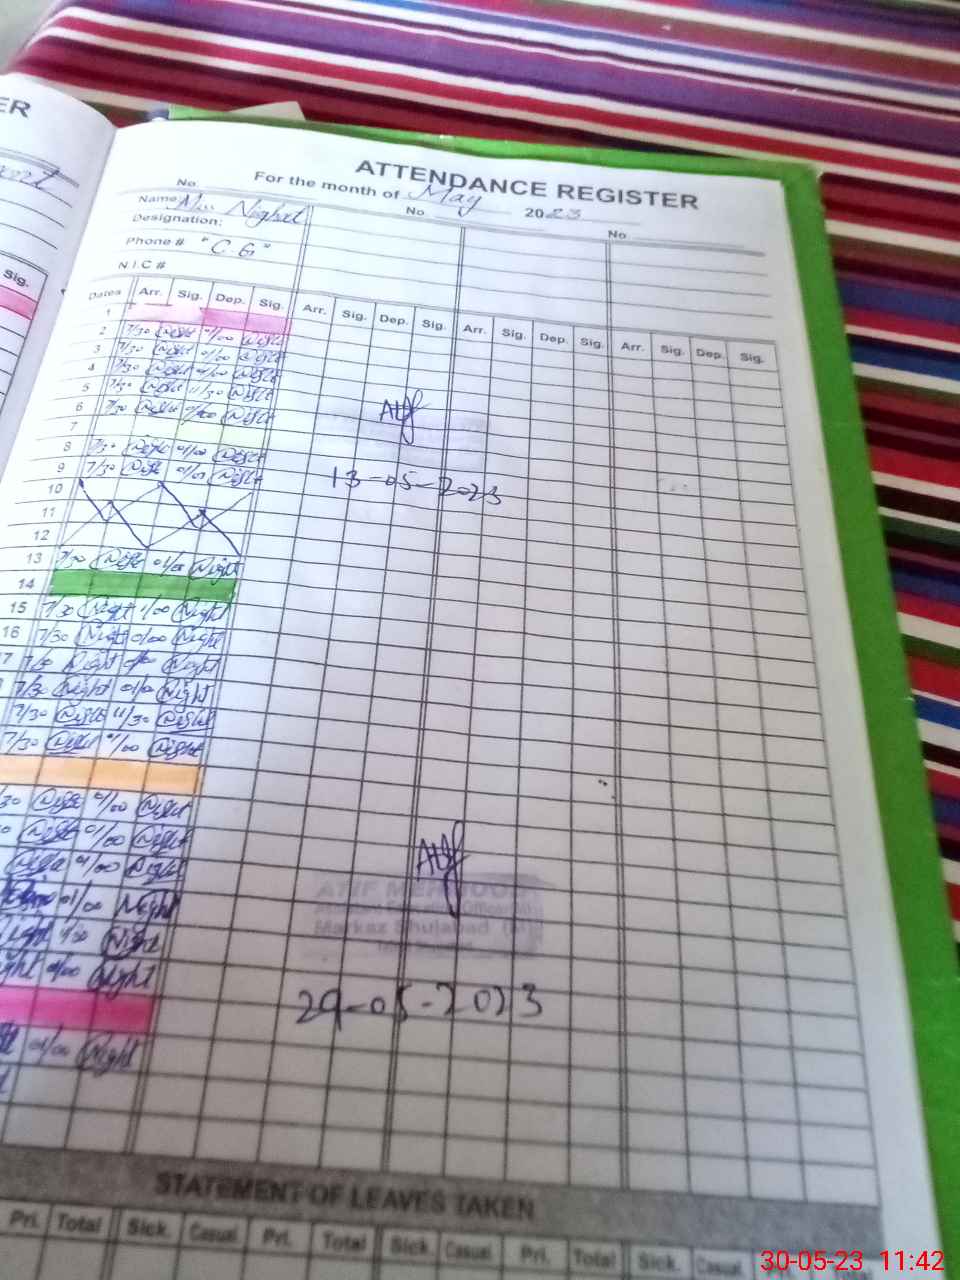 ER
ATTENDANCE REGISTER
For the month of May 2023
No. No No
Name Miss Nighat
Designation:
Phone # "C.G"
N I C #
Sig.
Dates Arr. Sig. Dep. Sig. Arr. Sig. Dep. Sig. Arr. Sig. Dep. Sig. Arr. Sig. Dep. Sig.
1
2 7/30 Nighat 01/00 Nighat
3 7/30 Nighat 01/00 Nighat
4 7/30 Nighat 01/00 Nighat
5 7/30 Nighat 11/30 Nighat
6 7/30 Nighat 01/00 Nighat
Atif
7
8 7/30 Nighat 01/00 Nighat
9 7/30 Nighat 01/00 Nighat
13-05-2023
10
11
12
13 7/30 Nighat 01/00 Nighat
14
15 7/30 Nighat 1/00 Nighat
16 7/30 Nighat 01/00 Nighat
7 Nighat Nighat
7/30 Nighat 01/00 Nighat
7/30 Nighat 11/30 Nighat
7/30 Nighat 01/00 Nighat
30 Nighat 01/00 Nighat
Nighat 01/00 Nighat
Nighat 01/00 Nighat
Atif
01/00 Nighat
ATIF MEHMOOD
Markaz Shujabad (M)
Nighat
01/00 Nighat
29-05-2023
01/00 Nighat
STATEMENT OF LEAVES TAKEN
Pri. Total Sick. Casual Pri. Total Sick. Casual Pri. Total Sick. Casual
30-05-23 11:42